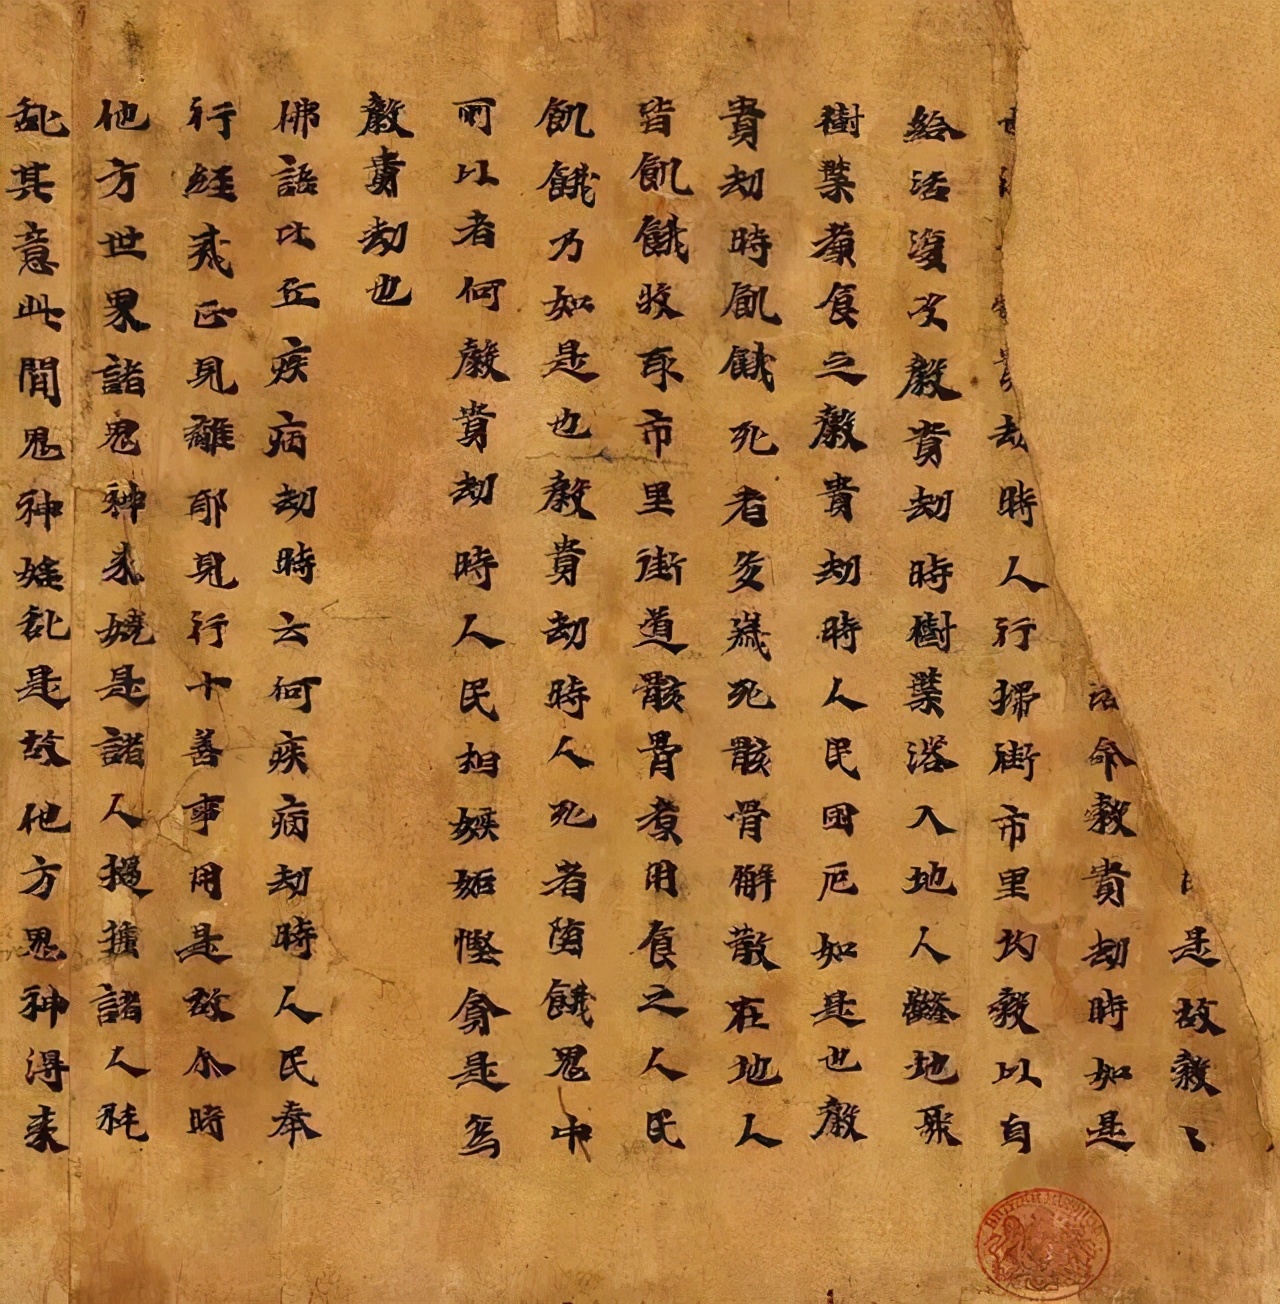 是故穀〻
活命穀貴劫時如是
劫時人行掃街市里均穀以自
給活復次穀貴劫時樹葉落入地人鑿地取
樹葉煮食之穀貴劫時人民困厄如是也穀
貴劫時飢餓死者多死骸骨解散在地人
皆飢餓收取市里街道骸骨煮用食之人民
飢餓乃如是也穀貴劫時人死者墮餓鬼中
所以者何穀貴劫時人民相嫉妬慳貪是為
穀貴劫也
佛語比丘疾病劫時云何疾病劫時人民奉
行經戒正見離耶見行十善事用是故尒時
他方世界諸鬼神来嬈是諸人撾捶諸人秏
亂其意此間鬼神婬亂是故他方鬼神得来